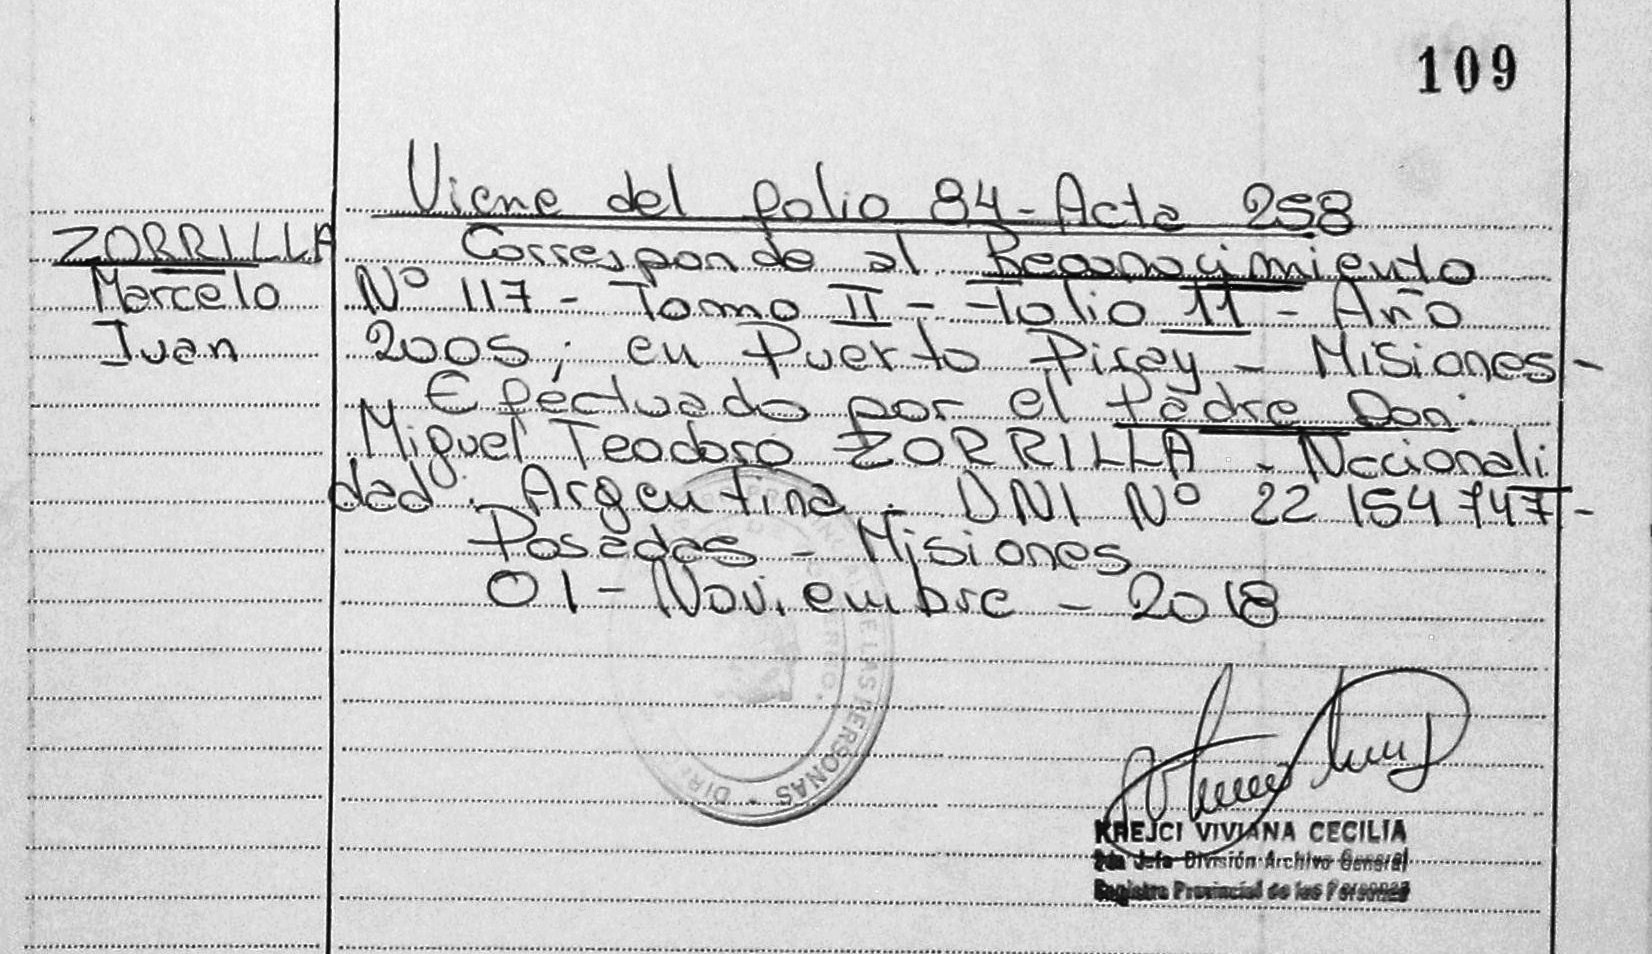 109
Viene del folio 84 - Acta 258
ZORRILLA
Marcelo
Juan
Corresponde al Reconocimiento
Nº 117 - Tomo II - Folio 11 - Año
2005; en Puerto Piray - Misiones -
Efectuado por el Padre Don:
Miguel Teodoro ZORRILLA - Nacionali
dad: Argentina. DNI Nº 22 154 747 -
Posadas - Misiones
01 - Noviembre - 2018
DE LAS PERSONAS
KREJCI VIVIANA CECILIA
2da Jefa División Archivo General
Registro Provincial de las Personas